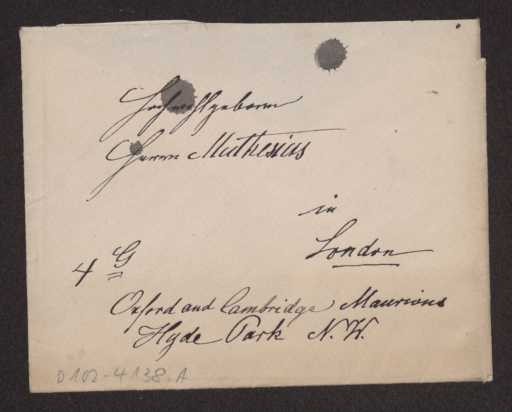 Hochwohlgeboren
Herrn Muthesius
in
London
4 G
Oxford and Cambridge Maurions
Hyde Park N. W.
D 102-4138.A